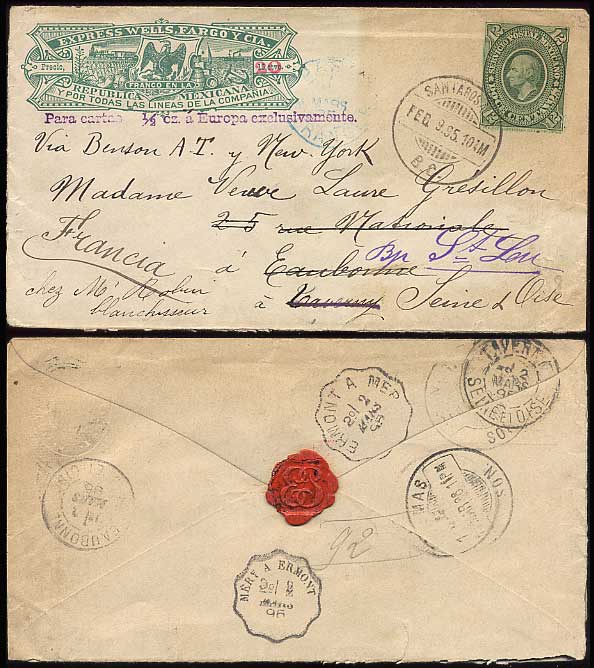 EXPRESS WELLS, FARGO Y CIA.
Precio,
FRANCO EN LA
20
REPUBLICA MEXICANA
Y POR TODAS LAS LINEAS DE LA COMPAÑIA.
Para cartas ½ oz. á Europa exclusivamente.
SERVICIO POSTAL MEXICANO
12
12
SANTA ROS
FEB. 8.95.10AM
B. C.
Via Benson A.T. y New. York
Madame Veuve Laure Gresillon
25 rue Nationale
Francia á Eaubonne Bp St Leu
chez Mr Robin á Taverny Seine & Oise
blanchisseur
ERMONT A MER
2
MARS
95
TAVERNY
2
MARS
SEINE ET OISE
EAUBONNE
MARS
95
MAS
SON
92
MERY A ERMONT
2
MARS
95